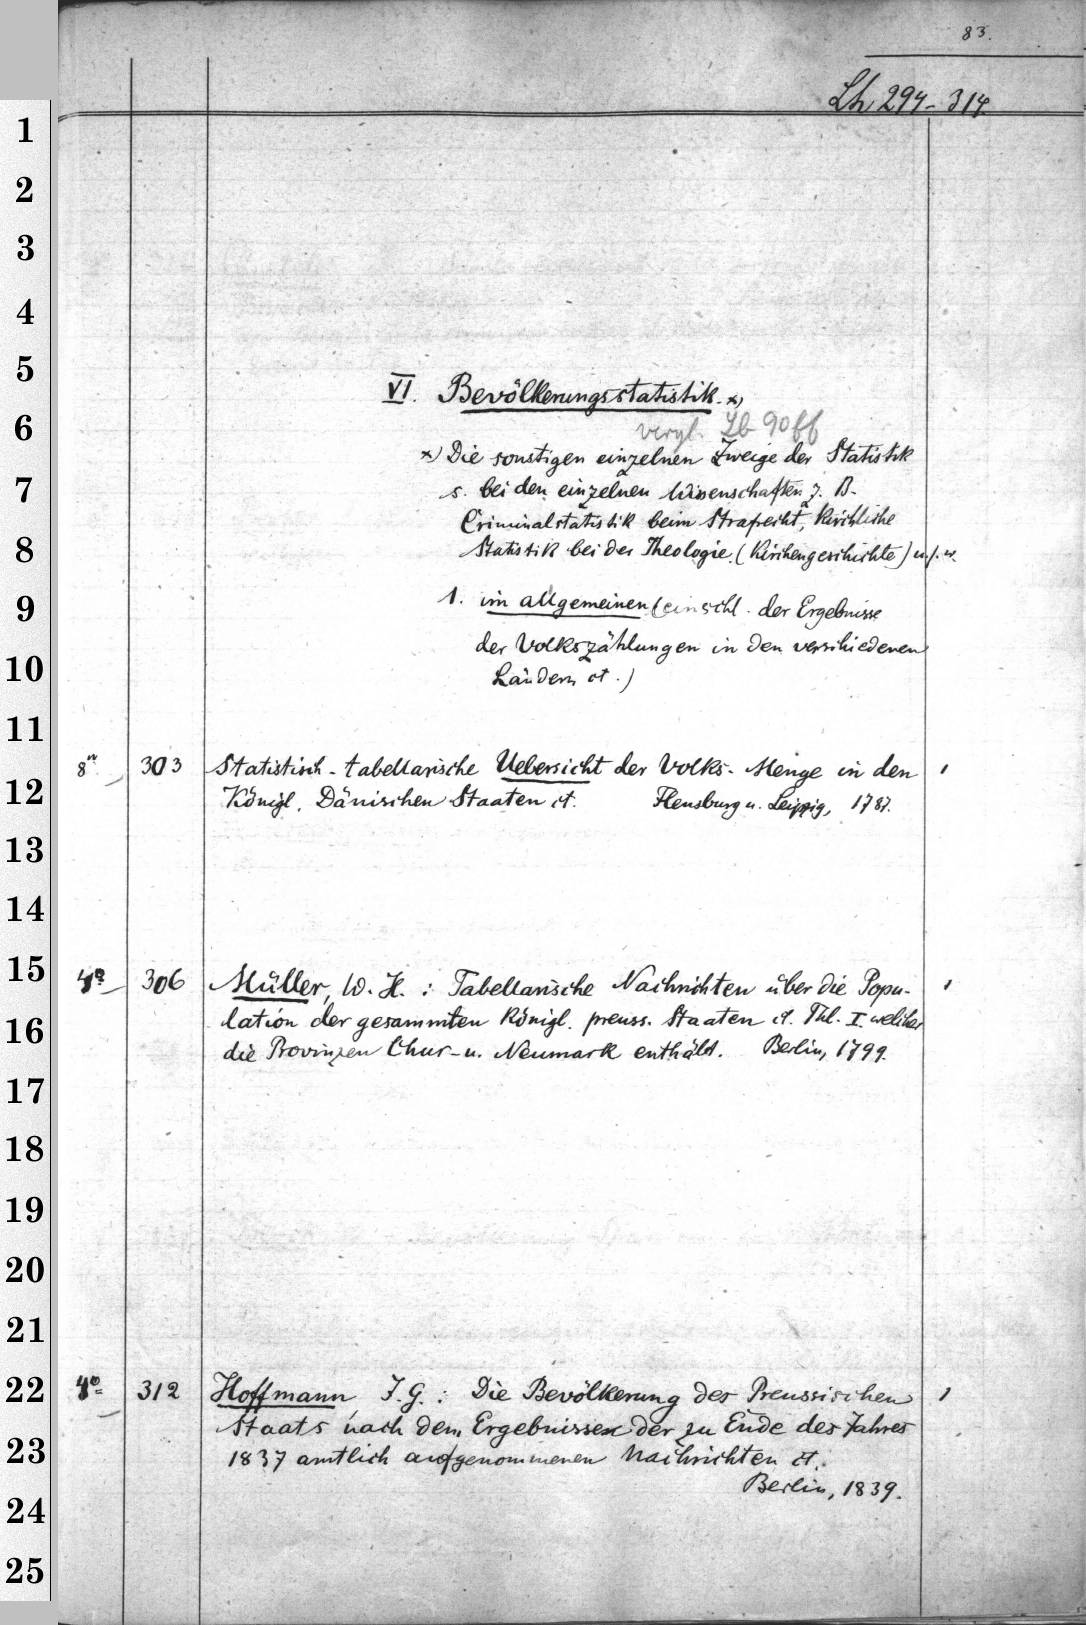 83.
Lh 294-314.
VI. Bevölkerungsstatistik. x)
vergl. Lb 90 ff
x) Die sonstigen einzelnen Zweige der Statistik
s. bei den einzelnen Wissenschaften z. B.
Criminalstatistik beim Strafrecht, kirchliche
Statistik bei der Theologie (Kirchengeschichte) u.s.w.
1. im allgemeinen (einschl. der Ergebnisse
der Volkszählungen in den verschiedenen
Ländern ct.)
8° 303 Statistisch-tabellarische Uebersicht der Volks-Menge in den 1
Königl. Dänischen Staaten ct. Flensburg u. Leipzig, 1787.
4° 306 Müller, W. H.: Tabellarische Nachrichten über die Popu- 1
lation der gesammten Königl. preuss. Staaten ct. Thl. I. welcher
die Provinzen Chur- u. Neumark enthält. Berlin, 1799.
4° 312 Hoffmann, J. G.: Die Bevölkerung des Preussischen 1
Staats nach dem Ergebnissen der zu Ende des Jahres
1837 amtlich aufgenommenen Nachrichten ct.
Berlin, 1839.
1
2
3
4
5
6
7
8
9
10
11
12
13
14
15
16
17
18
19
20
21
22
23
24
25